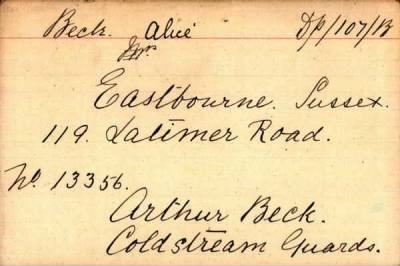 Beck. Alice DP/107/B
Mrs
Eastbourne. Sussex.
119. Latimer Road.
No. 13356.
Arthur Beck.
Coldstream Guards.